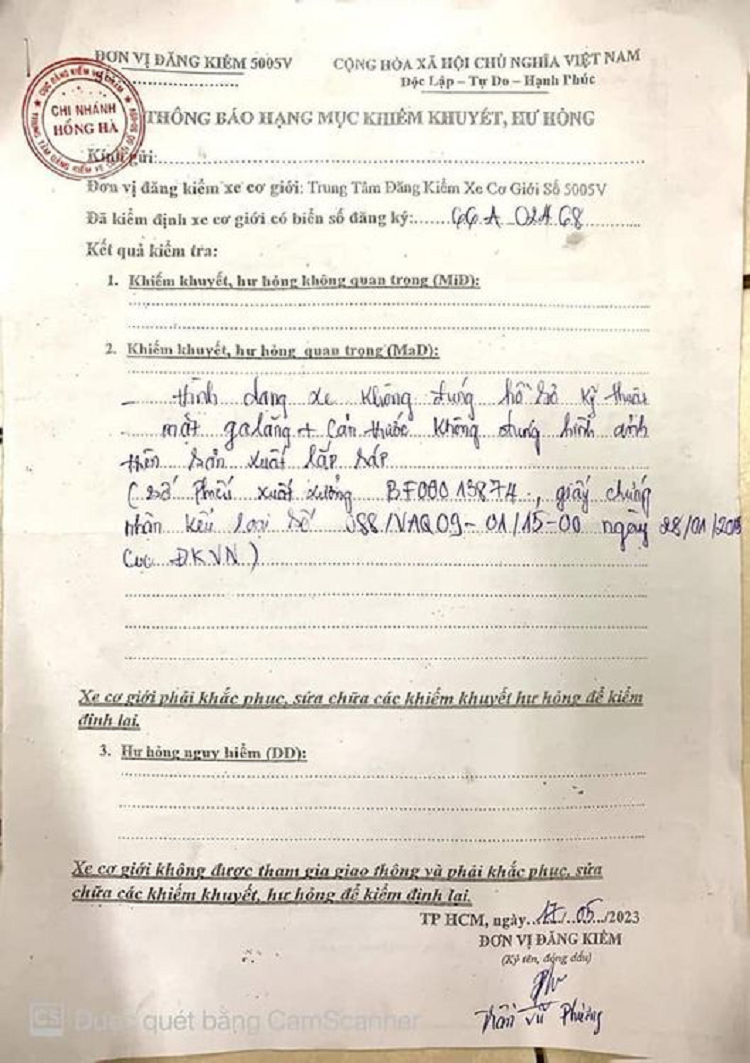 ĐƠN VỊ ĐĂNG KIỂM 5005V
CỘNG HÒA XÃ HỘI CHỦ NGHĨA VIỆT NAM
Độc Lập – Tự Do – Hạnh Phúc
CHI NHÁNH
HỒNG HÀ
THÔNG BÁO HẠNG MỤC KHIẾM KHUYẾT, HƯ HỎNG
Kính gửi:
Đơn vị đăng kiểm xe cơ giới: Trung Tâm Đăng Kiểm Xe Cơ Giới Số 5005V
Đã kiểm định xe cơ giới có biển số đăng ký: 66A 02468
Kết quả kiểm tra:
1. Khiếm khuyết, hư hỏng không quan trọng (MiD):
2. Khiếm khuyết, hư hỏng quan trọng (MaD):
- Hình dạng xe không đúng hồ sơ kỹ thuật
mặt galăng + Cản trước không đúng hình ảnh
trên sản xuất lắp ráp
(Số Phiếu xuất xưởng BF000 13874, giấy chứng
nhận kiểu loại số /VAQ09-01/15-00 ngày 28/01/
Cục ĐKVN)
Xe cơ giới phải khắc phục, sửa chữa các khiếm khuyết hư hỏng để kiểm
định lại.
3. Hư hỏng nguy hiểm (DD):
Xe cơ giới không được tham gia giao thông và phải khắc phục, sửa
chữa các khiếm khuyết, hư hỏng để kiểm định lại.
TP HCM, ngày 17/05/2023
ĐƠN VỊ ĐĂNG KIỂM
(Ký tên, đóng dấu)
Trần Vũ Phương
CS Được quét bằng CamScanner